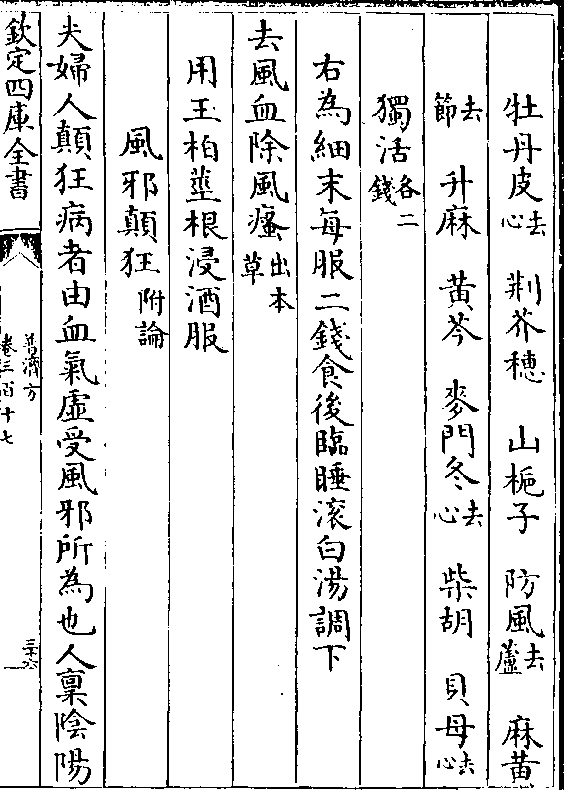 牡丹皮去心　荆芥穗　山梔子　防風去蘆　麻黄
去節　升麻　黄芩　麥門冬去心　柴胡　貝母去心
獨活各二錢
右為細末每服二錢食後臨睡滚白湯調下
去風血除風瘙出本草
用玉柏莖根浸酒服
風邪顛狂附論
夫婦人顛狂病者由血氣虛受風邪所為也人稟陰陽
欽定四庫全書
普濟方
卷三百十七
三十六